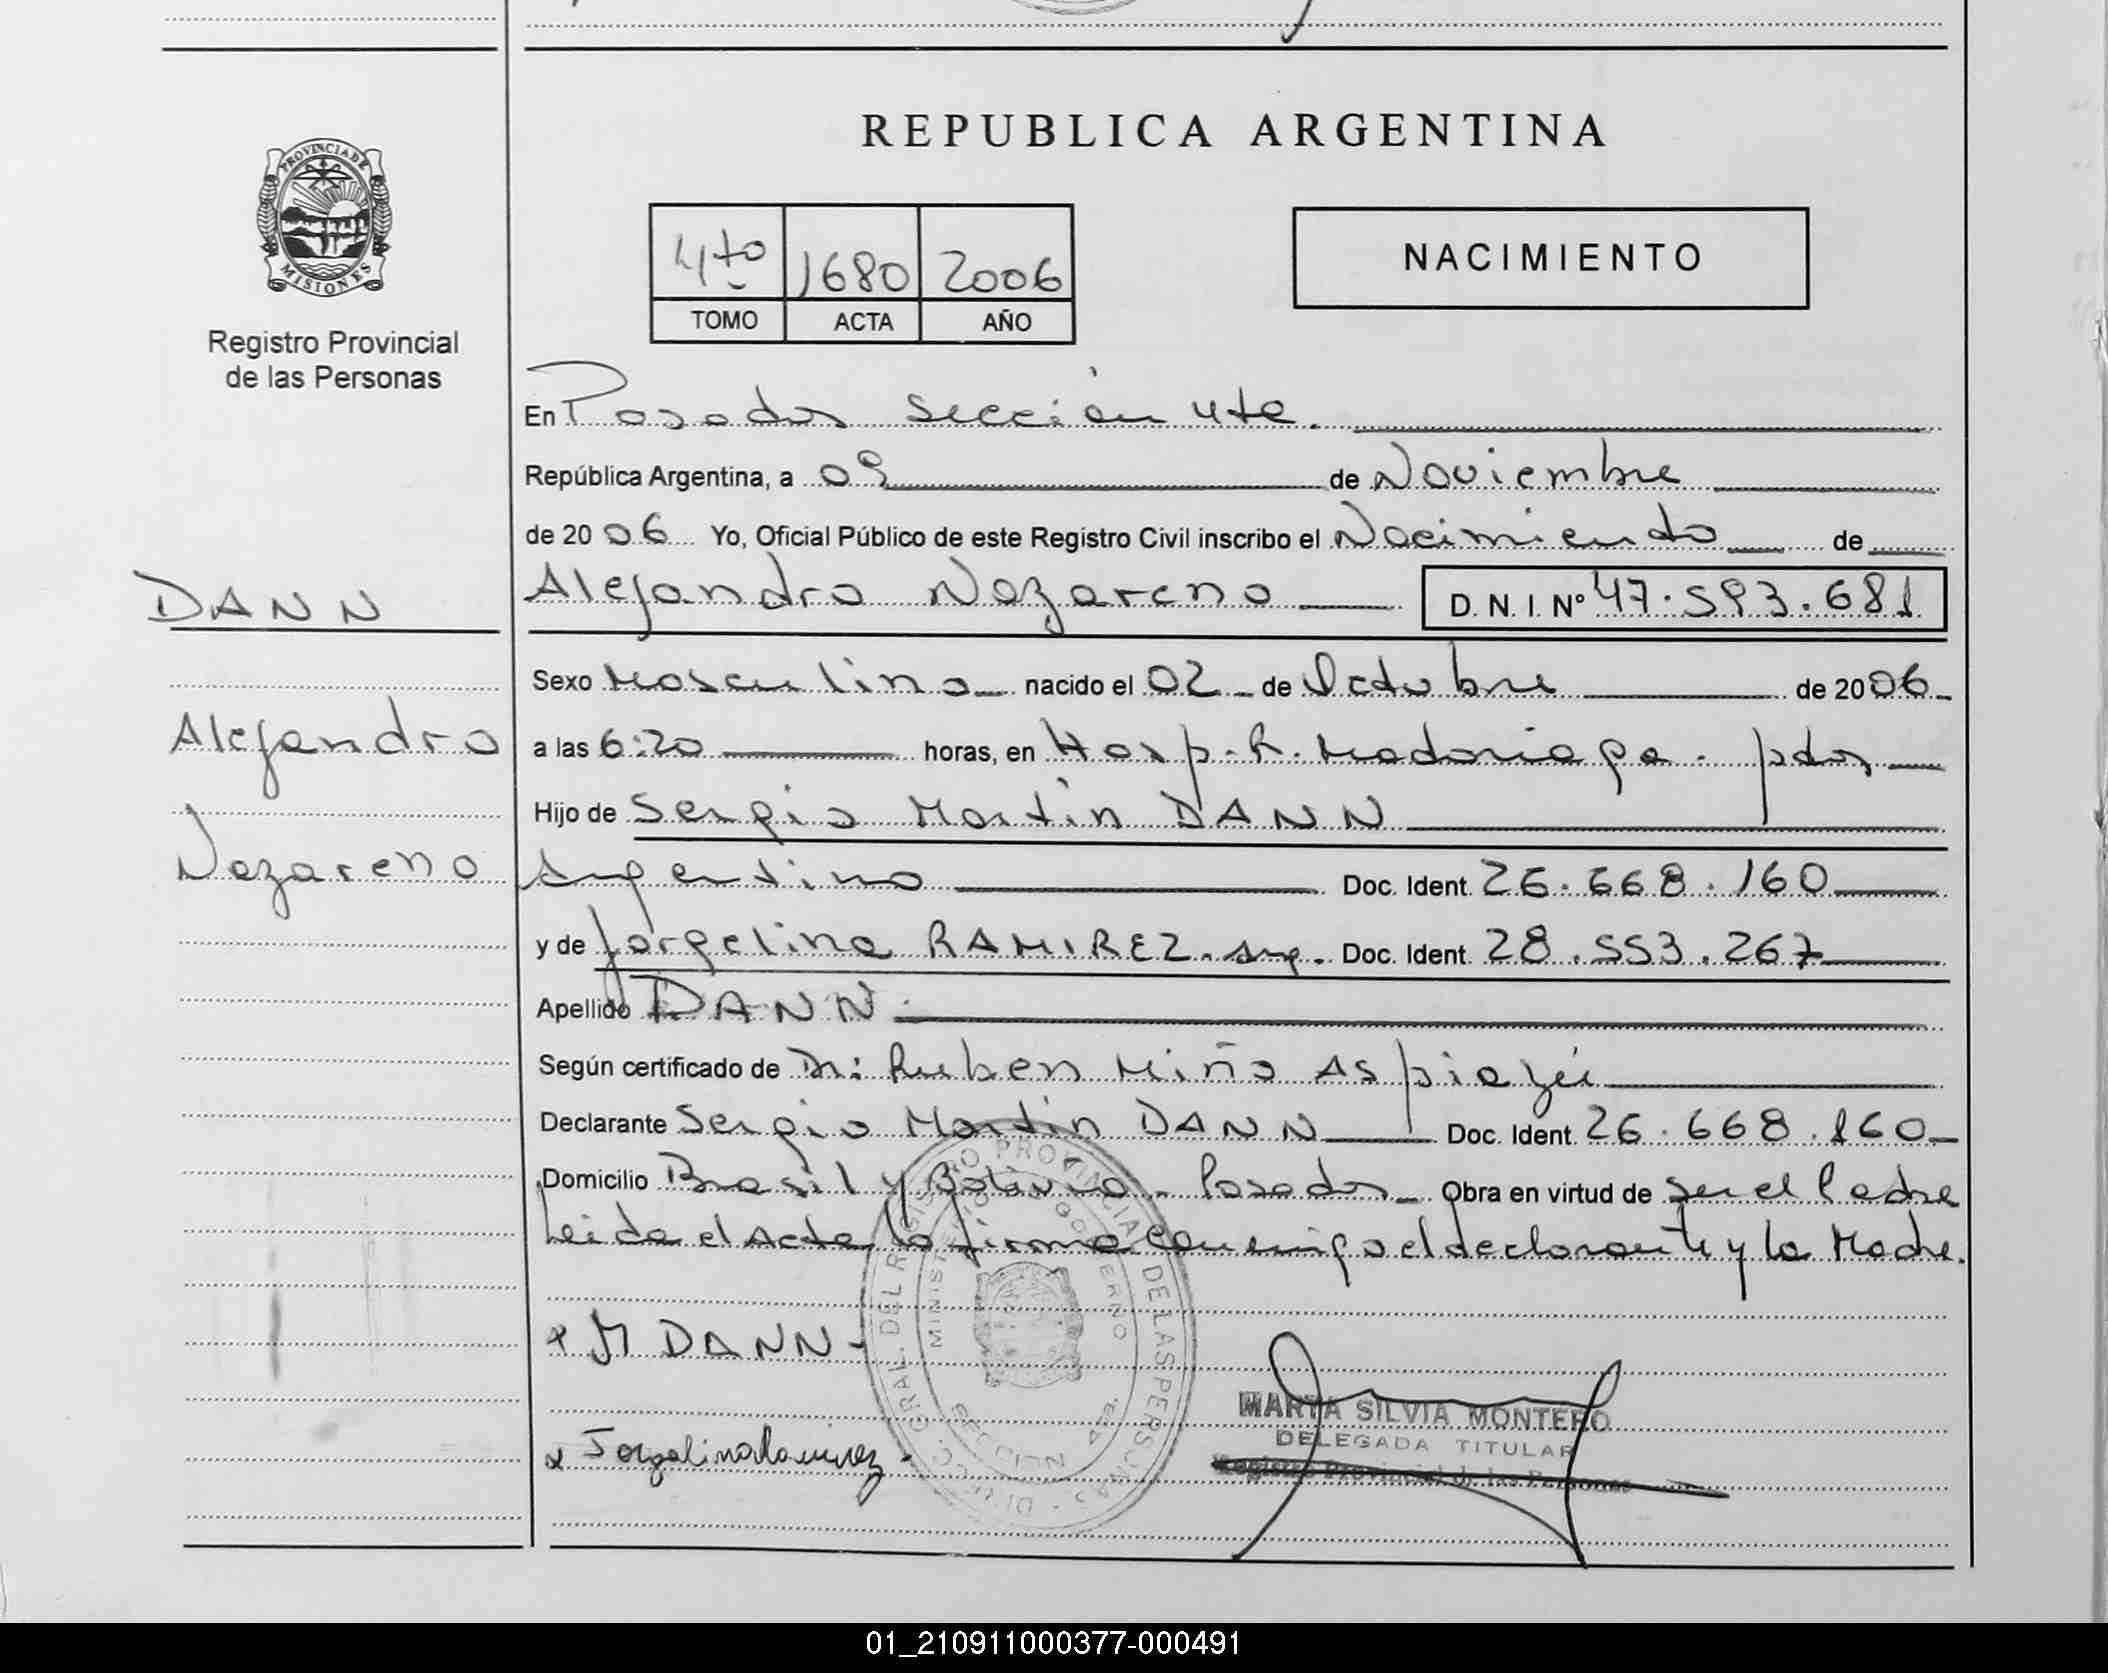 PROVINCIA DE
MISIONES
Registro Provincial
de las Personas
DANN
Alejandro
Nazareno
REPUBLICA ARGENTINA
4to 1680 2006
TOMO ACTA AÑO
NACIMIENTO
En Posadas Sección 4ta.
República Argentina, a 09 de Noviembre
de 2006 Yo, Oficial Público de este Registro Civil inscribo el Nacimiento de
Alejandro Nazareno D. N. I. Nº 47.593.681
Sexo Masculino nacido el 02 de Octubre de 2006
a las 6:20 horas, en Hosp. R. Madariaga. pdas
Hijo de Sergio Martin DANN
Argentino Doc. Ident. 26.668.160
y de Jorgelina RAMIREZ. Arg. Doc. Ident. 28.553.267
Apellido DANN
Según certificado de Dr: Ruben Miño Aspiazú
Declarante Sergio Martin DANN Doc. Ident. 26.668.160
Domicilio Brasil y Bolivia - Posadas Obra en virtud de Ser el Padre
Leida el Acta la firma conmigo el declarante y la Madre.
x M DANN
x Jorgelina Ramirez.
DIRECC. GRAL. DEL REGISTRO PROVINCIAL DE LAS PERSONAS
MINISTERIO DE GOBIERNO
SECCION 4ta.
MARTA SILVIA MONTERO
DELEGADA TITULAR
Registro Provincial de las Personas
01_210911000377-000491